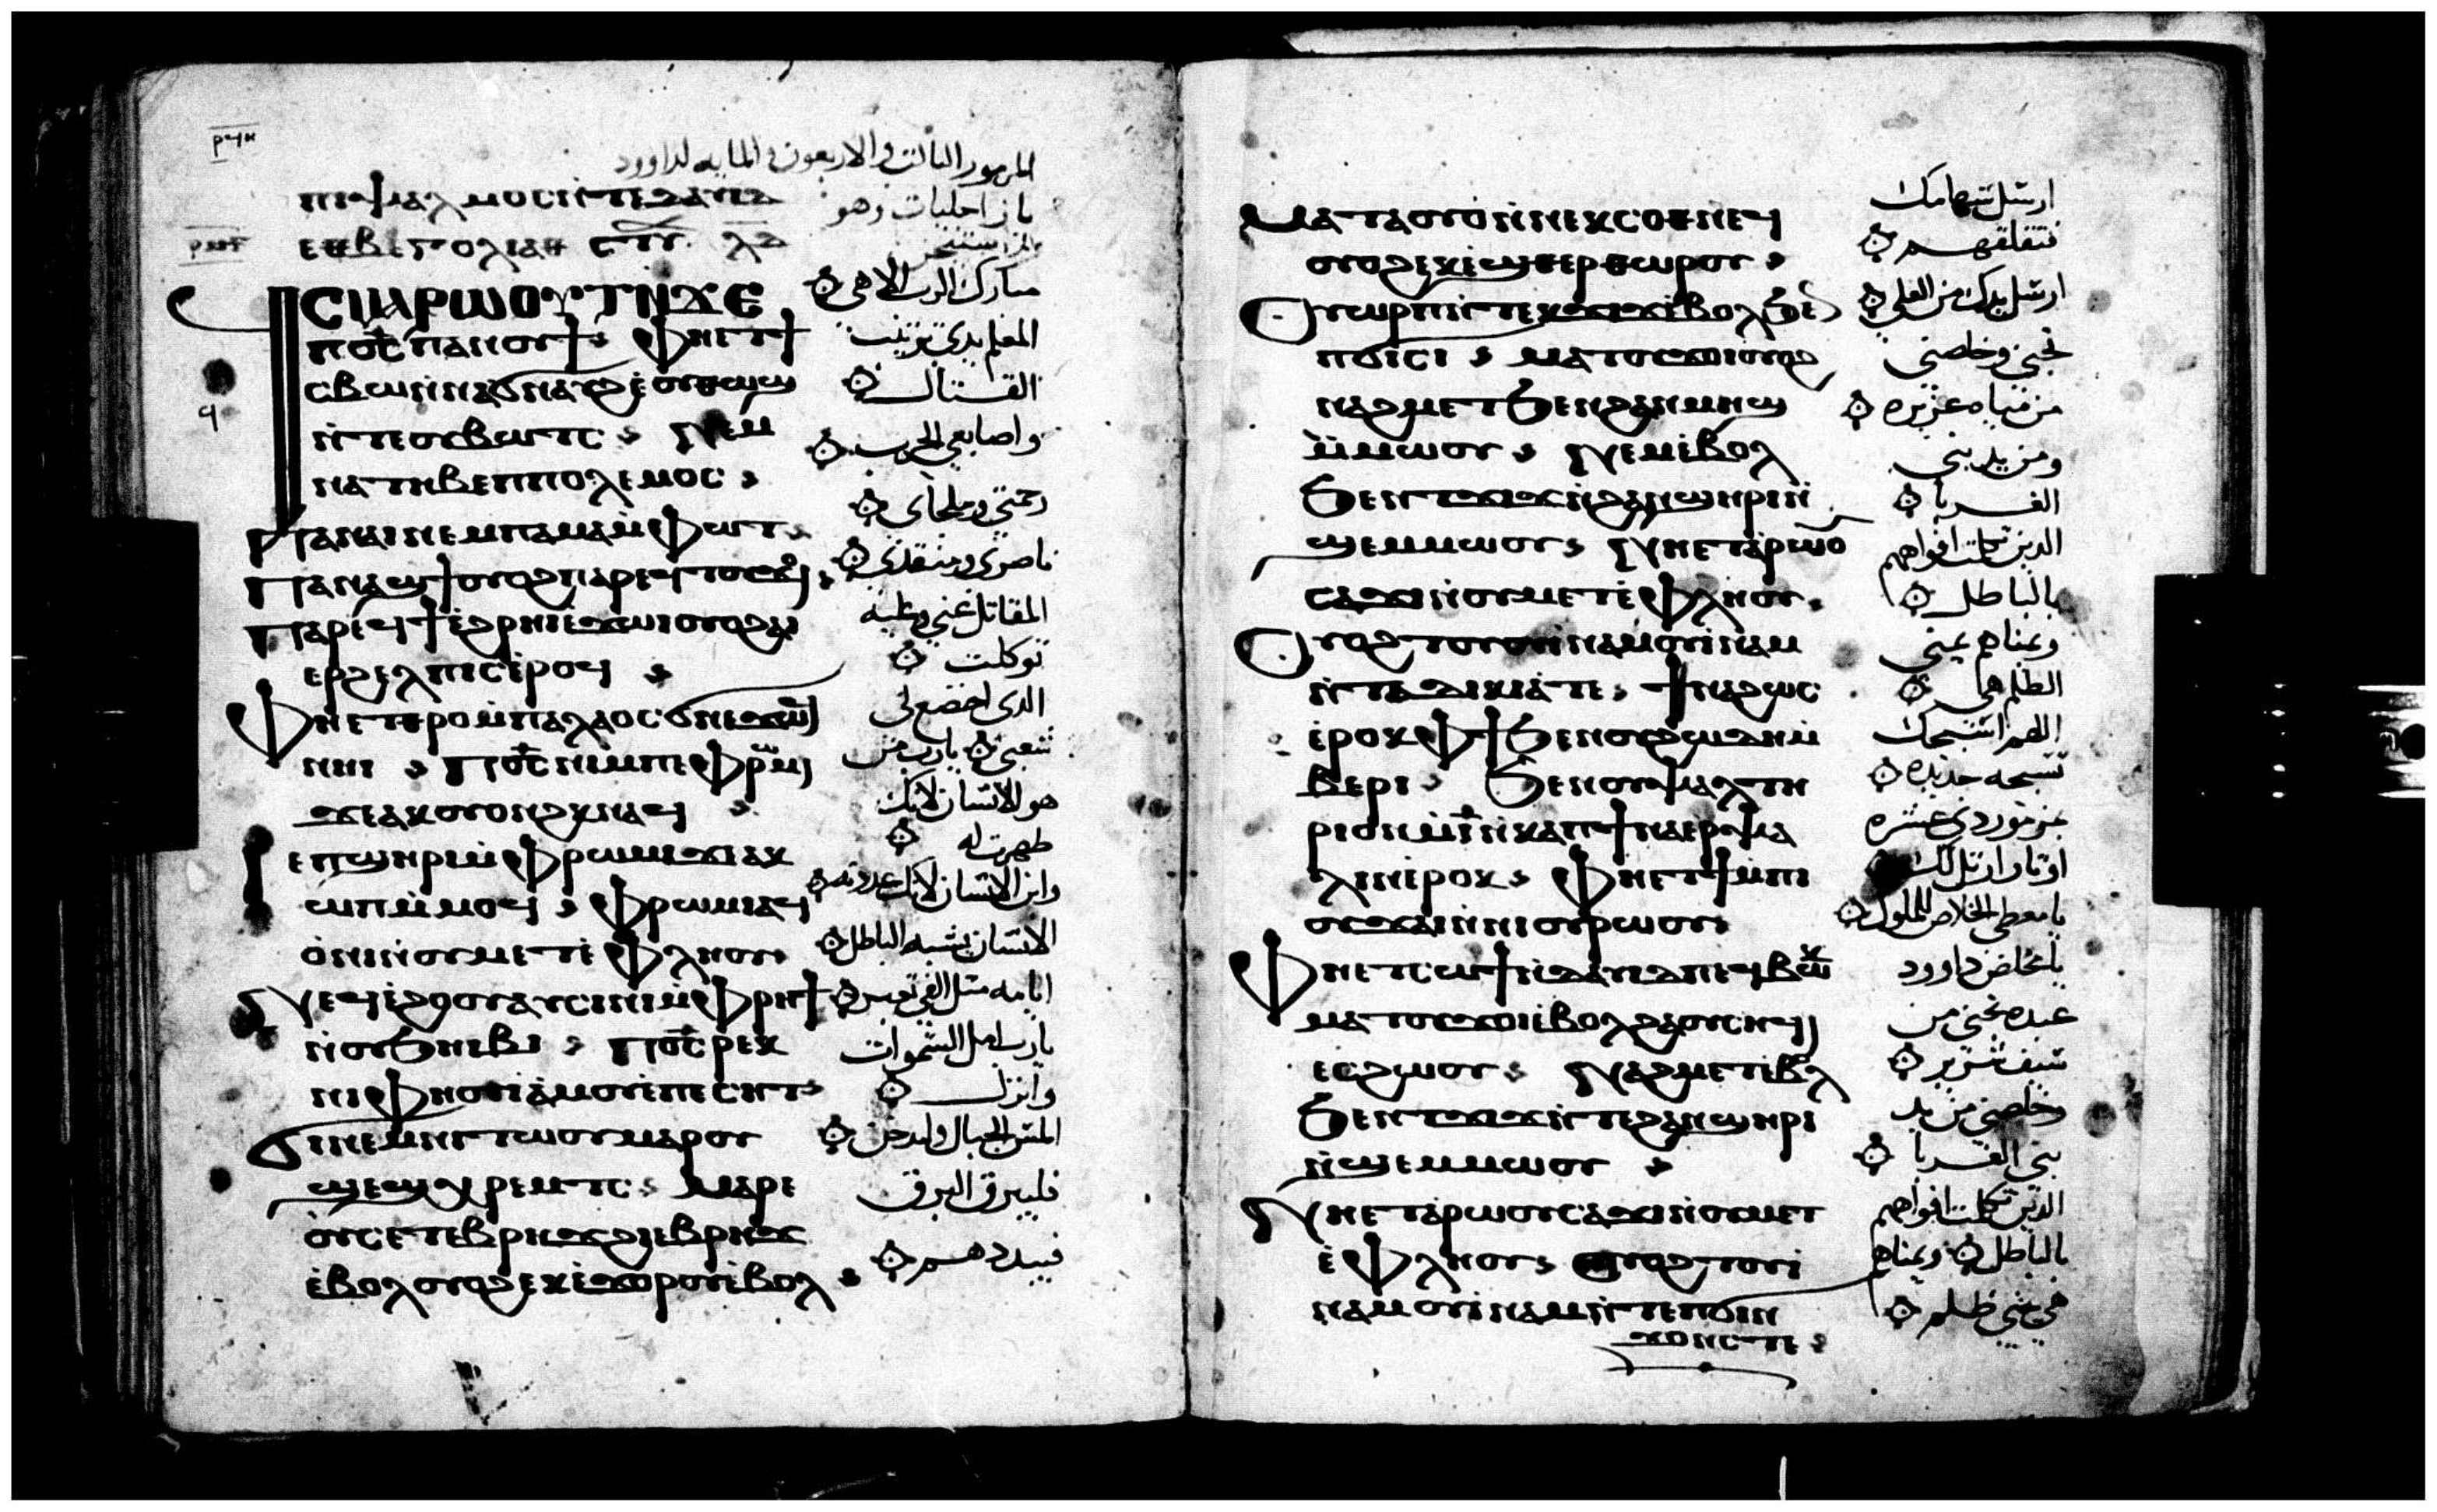 المزمور الثالث والاربعون والمايه لداوود
ⲡⲓⲯⲁⲗⲙⲟⲥ ⲛ̀ⲧⲉ ⲇⲁⲩⲓⲇ
ⲡⲥⲙⲁⲣⲱⲟⲩⲧ ⲛ̀ϫⲉ
ⲡϭⲥ ⲡⲁⲛⲟⲩϯ ⲫⲏⲉⲧϯ
ⲥⲃⲱ ⲛ̀ⲛⲁϭⲛⲁϩ ⲉ̀ⲟⲩⲛϣϣ
ⲛ̀ⲧⲉ ⲟⲩⲃⲱⲧⲥ ⲛⲉⲙ
ⲛⲁⲧⲏⲃ ⲉⲡⲡⲟⲗⲉⲙⲟⲥ
ⲡⲁⲛⲁⲓ ⲛⲉⲙ ⲡⲁⲙⲁⲙ̀ⲫⲱⲧ
ⲡⲁⲛⲁϣϯ ⲟⲩⲟϩ ⲡⲁⲣⲉϥⲧⲟⲩϫⲟ
ⲡⲁⲣⲉϥϯ ⲉ̀ϩⲣⲏⲓ ⲉ̀ϫⲱⲓ ⲟⲩⲟϩ ⲁⲓ
ⲉⲣϩⲉⲗⲡⲓⲥ ⲉ̀ⲣⲟϥ
ⲫⲏⲉⲧϭⲣⲟ ⲙ̀ⲡⲁⲗⲁⲟⲥ ϭⲛⲉϫⲱϥ
ⲛⲏⲓ ⲡϭⲥ ⲛⲓⲙ ⲡⲉ ⲫⲣⲱⲙⲓ
ϫⲉ ⲁⲕⲟⲩⲟⲛϩⲕ ⲛⲁϥ
ⲓⲉ ⲡϣⲏⲣⲓ ⲙ̀ⲫⲣⲱⲙⲓ ϫⲉ ⲁⲕ
ⲱⲡ ⲙ̀ⲙⲟϥ ⲫⲣⲱⲙⲓ ⲁϥ
ⲟ̀ⲛⲓ ⲛ̀ⲟⲩⲙⲉⲧⲉ̀ⲫⲗⲏⲟⲩ
ⲛⲉϥⲉ̀ϩⲟⲟⲩ ⲁⲩⲥⲓⲛⲓ ⲙ̀ⲫⲣⲏϯ
ⲛ̀ⲟⲩϧⲏⲓⲃⲓ ⲡϭⲥ ⲣⲉⲕ
ⲛⲓⲫⲏⲟⲩⲓ ⲁ̀ⲙⲟⲩ ⲉ̀ⲡⲉⲥⲏⲧ
ϭⲓⲛⲉⲙ ⲛⲓⲧⲱⲟⲩ ⲙⲁⲣⲟⲩ
ϣⲉϣⲭⲣⲉⲙⲧⲥ ⲙⲁⲣⲉ
ⲟⲩⲥⲉⲧⲉⲃⲣⲏϫ ϩⲓⲉⲃⲣⲏϫ
ⲉ̀ⲃⲟⲗ ⲟⲩⲟϩ ⲉⲕⲉ̀ϫⲟⲣⲟⲩ ⲉ̀ⲃⲟⲗ
مبارك الرب الاهي
المعلم يدي ترتيب
القتال
واصابعي الحرب
رحمتي وملجاي
ناصري ومنقذي
المقاتل عني وعليه
توكلت
الذي اخضع لي
شعبي يارب من
هو الانسان لانك
ظهرت له
وابن الانسان لانك عددته
الانسان يشبه الباطل
ايامه مثل الفي تعبر
يارب امل السموات
وانزل
المس الجبال ولتدخن
فليبرق البرق
فيبددهم
ⲙⲁⲧⲁⲟⲩⲟ̀ ⲛ̀ⲛⲉⲕⲥⲟⲑⲛⲉϥ
ⲟⲩⲟϩ ⲉⲕⲉ̀ϣⲑⲉⲣⲑⲱⲣⲟⲩ
ⲟⲩⲱⲣⲡ ⲛ̀ⲧⲉⲕϫⲓϫ ⲉ̀ⲃⲟⲗϧⲉⲛ
ⲡϭⲓⲥⲓ ⲙⲁⲧⲟⲩϫⲟⲓ ⲟⲩⲟϩ
ⲛⲁϩⲙⲉⲧ ϧⲉⲛ ϩⲁⲛⲙⲏϣ
ⲙ̀ⲙⲱⲟⲩ ⲛⲉⲙ ⲉ̀ⲃⲟⲗ
ϧⲉⲛ ⲧϫⲓϫ ⲛ̀ϩⲁⲛϣⲏⲣⲓ ⲛ̀
ϣⲉⲙⲙⲱⲟⲩ ⲛⲏⲉⲧⲁⲣⲱⲟⲩ
ⲥⲁϫⲓ ⲛ̀ⲟⲩⲙⲉⲧⲉ̀ⲫⲗⲏⲟⲩ
ⲟⲩⲟϩ ⲧⲟⲩⲟⲩⲓⲛⲁⲙ ⲟⲩⲓ̀ⲛⲁⲙ
ⲛ̀ⲧⲁⲇⲓⲕⲓⲁ̀ ⲧⲉ ϯⲛⲁϩⲱⲥ
ⲉ̀ⲣⲟⲕ ⲫϯ ϧⲉⲛ ⲟⲩϩⲱⲇⲏ ⲙ̀
ⲃⲉⲣⲓ ϧⲉⲛ ⲟⲩⲯⲁⲗⲧⲏ
ⲣⲓⲟⲛ ⲙ̀ⲓ̅ ⲛ̀ⲕⲁⲡ ϯⲛⲁⲉⲣⲯⲁ
ⲗⲓⲛ ⲉ̀ⲣⲟⲕ ⲫⲏⲉⲧϯ ⲙ̀ⲡⲓ
ⲟⲩϫⲁⲓ ⲛ̀ⲛⲓⲟⲩⲣⲱⲟⲩ
ⲫⲏⲉⲧⲥⲱϯ ⲛ̀ⲇⲁⲩⲓⲇ ⲡⲉϥⲃⲱⲕ
ⲙⲁⲧⲟⲩϫⲟⲓ ⲉ̀ⲃⲟⲗϩⲁ ⲟⲩⲥⲏϥⲓ
ⲉⲥϩⲱⲟⲩ ⲛⲁϩⲙⲉⲧ ⲉ̀ⲃⲟⲗ
ϧⲉⲛ ⲧϫⲓϫ ⲛ̀ⲧⲉ ϩⲁⲛϣⲏⲣⲓ
ⲛ̀ϣⲉⲙⲙⲱⲟⲩ
ⲛⲏⲉⲧⲁⲣⲱⲟⲩ ⲥⲁϫⲓ ⲛ̀ⲟⲩⲙⲉⲧ
ⲉ̀ⲫⲗⲏⲟⲩ ⲟⲩⲟϩ ⲧⲟⲩⲓ
ⲛⲁⲙ ⲟⲩⲓ̀ⲛⲁⲙ ⲛ̀ⲧⲉ ⲡϭⲓⲛ
ϫⲟⲛⲥ ⲧⲉ
ارسل سهامك
فتقلقهم
ارسل يدك من العلي
نجني وخلصني
من مياه غزيره
ومن يد بني
الغربا
الذين تكلمت افواههم
بالباطل
ويمناهم يمني
الظلم هي
اللهم اسبحك
تسبحه جديده
بمزمور ذي عشره
اوتار ارتل لك
يا معطي الخلاص للملوك
يا مخلص داوود
عبده نجني من
سيف شرير
وخلصني من يد
بني الغربا
الذين تكلمت افواههم
بالباطل ويمناهم